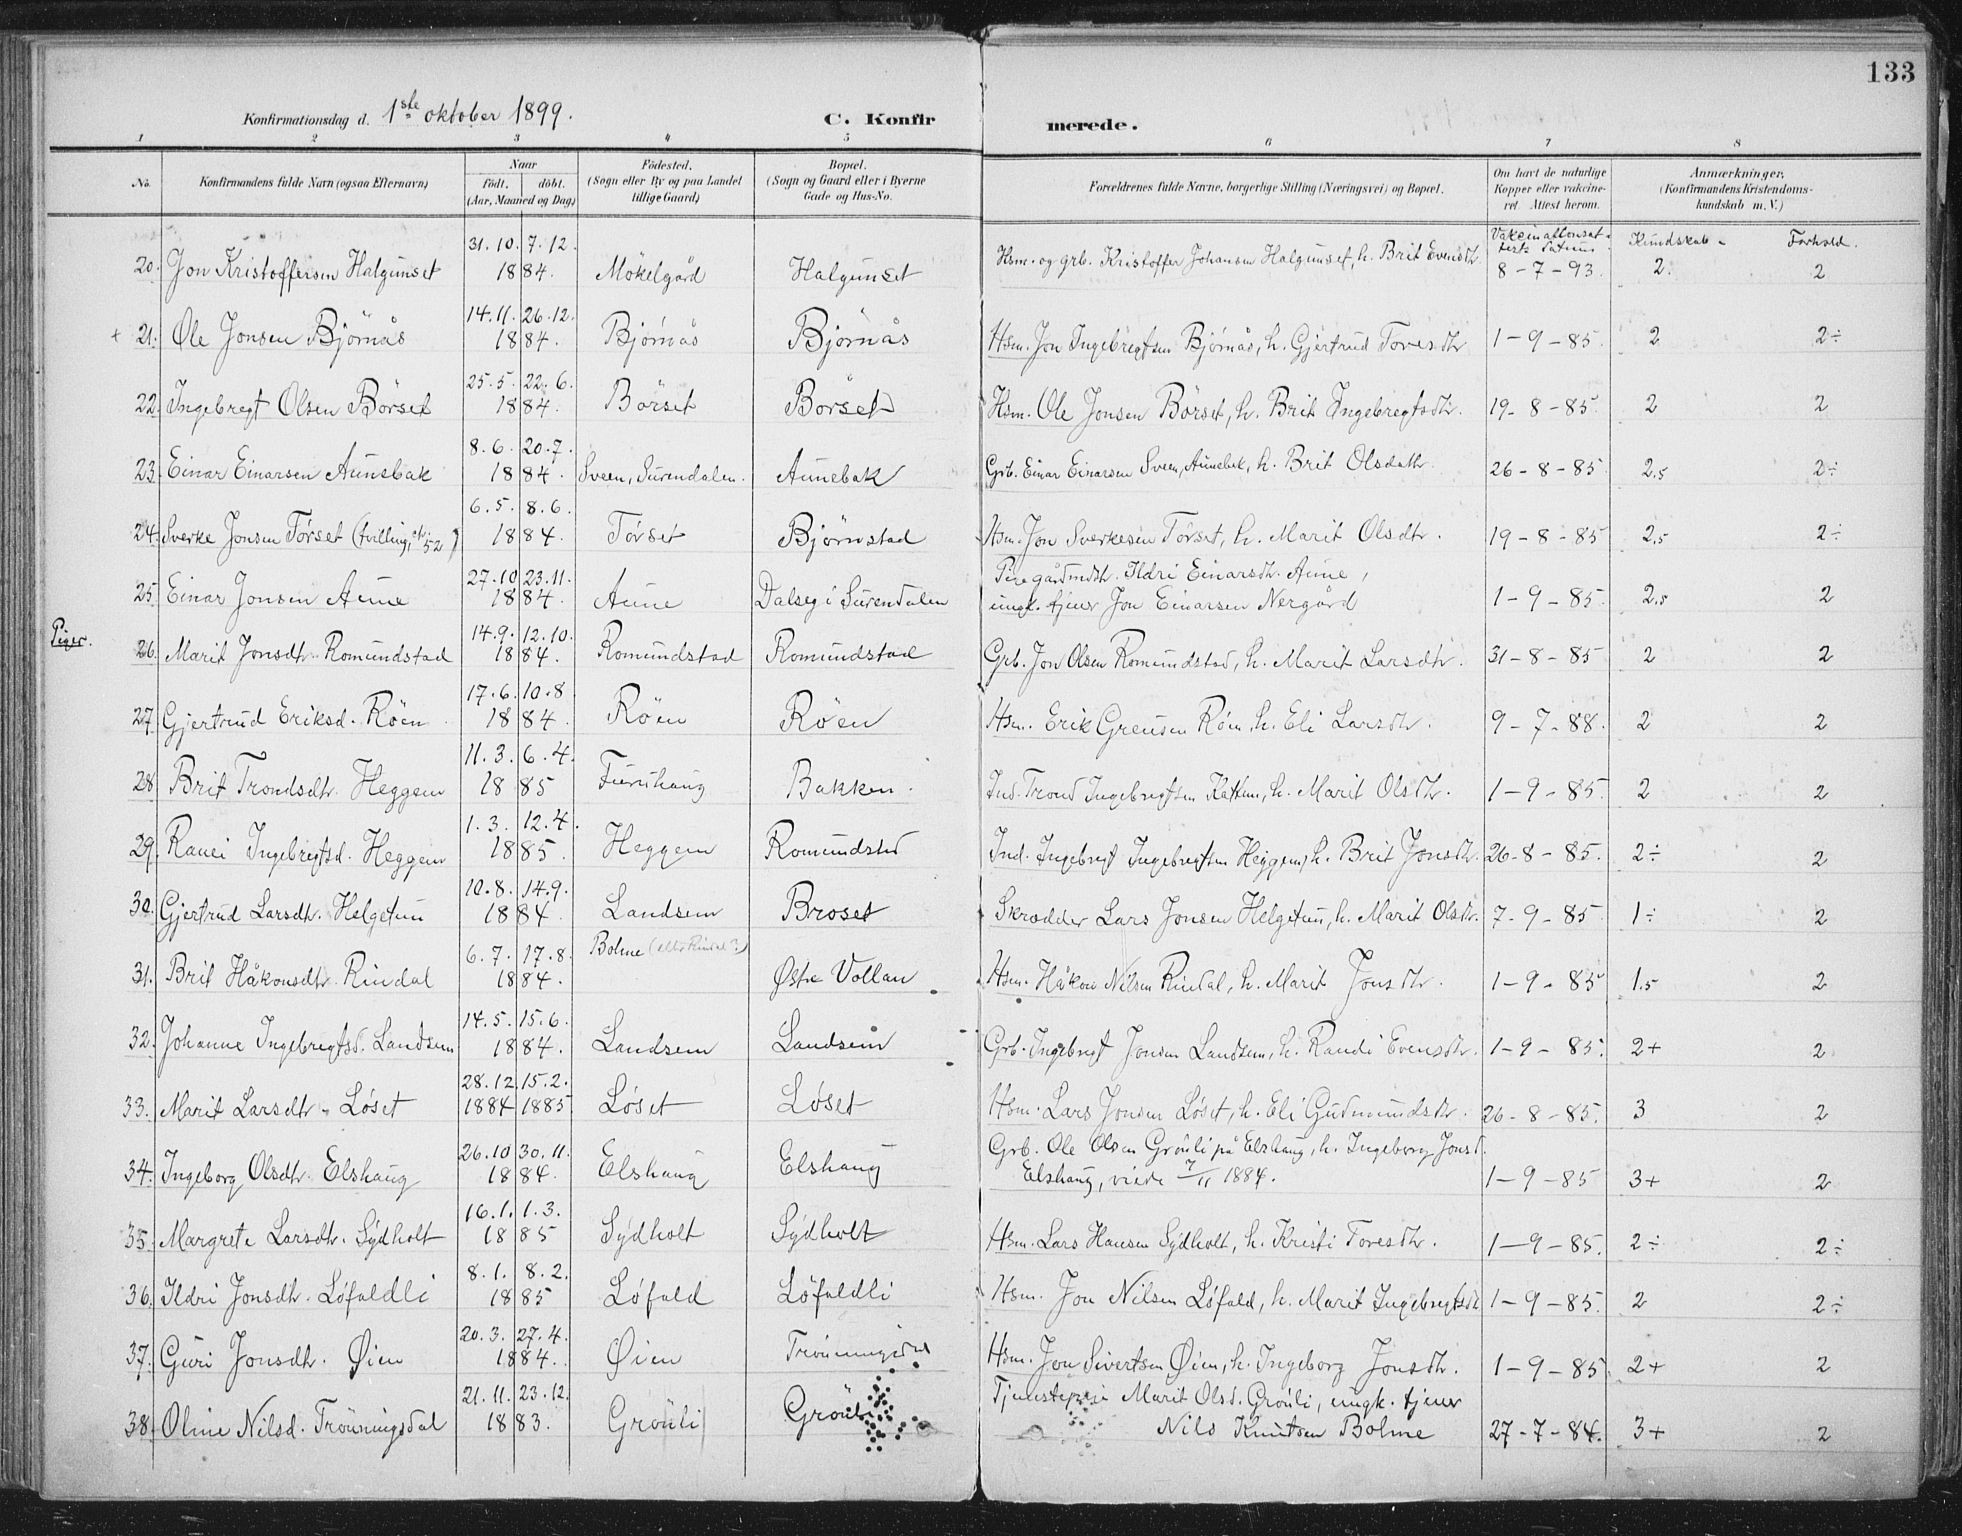 133
Konfirmationsdag d. 1ste oktober 1899.
C. Konfirmerede.
1 2 3 4 5 6 7 8
No.
Konfirmandens fulde Navn (ogsaa Efternavn)
Naar
födt. döbt.
(Aar, Maaned og Dag)
Födested.
(Sogn eller By og paa Landet
tillige Gaard)
Bopæl.
(Sogn og Gaard eller i Byerne
Gade og Hus-No.
Forældrenes fulde Navne, borgerlige Stilling (Næringsvei) og Bopæl.
Om havt de naturlige
Kopper eller vakcine-
ret. Attest herom.
Anmærkninger,
(Konfirmandens Kristendoms-
kundskab m. V.)
Kundskab - Forhold.
20. Jon Kristoffersen Halgunset 31.10. 7.12. 1884. Mökelgård Halgunset Hsm. og grb. Kristoffer Johansen Halgunset, h. Brit Evensdtr. 8-7-93. 2. 2
+ 21. Ole Jonsen Björnås 14.11. 26.12. 1884. Björnås Björnås Hsm. Jon Ingebrigtsen Björnås, h. Gjertrud Toresdtr 1-9-85. 2 2÷
22. Ingebregt Olsen Börset 25.5. 22.6. 1884. Börset Börset Hsm. Ole Jonsen Börset, h. Brit Ingebregtsdtr. 19-8-85. 2 2
23. Einar Einarsen Aunebak 8.6. 20.7. 1884. Sveen, Surendalen. Aunebak Grb. Einar Einarsen Sveen, Aunebak, h. Brit Olsdatr. 26-8-85 2,5 2÷
24. Sverke Jonsen Törset (tvilling, No 52) 6.5. 8.6. 1884. Törset Björnstad Hsm. Jon Sverkesen Törset, h. Marit Olsdtr. 19-8-85 2,5 2÷
25 Einar Jonsen Aune 27.10 23.11. 1884. Aune Dalseg i Surendalen Pige gårdmdtr. Ildri Einarsdtr. Aune,
ungk. tjener Jon Einarsen Nergård 1-9-85. 2,5 2
Piger.
26. Marit Jonsdtr. Romundstad 14.9. 12.10. 1884. Romundstad Romundstad Grb. Jon Olsen Romundstad, h. Marit Larsdtr. 31-8-85 2 2
27. Gjertrud Eriksd. Röen 17.6. 10.8 1884. Röen Röen Hsm. Erik Greusen Röen, h. Eli Larsdtr. 9-7-88. 2 2
28 Brit Trondsdtr. Heggem 11.3. 6.4. 1885 Furuhaug Bakken. Ind. Trond Ingebrigtsen, h. Marit Olsdtr. 1-9-85. 2 2
29. Ranei Ingebregtsd. Heggem 1.3. 12.4. 1885. Heggem Romundstad Ind. Ingebrigt Ingebrigtsen Heggem, h. Brit Jonsdtr. 26-8-85. 2÷ 2
30. Gjertrud Larsdtr. Helgetun 10.8. 14.9. 1884. Landsem Broset Skrædder Lars Jonsen Helgetun, h. Marit Olsdtr. 7-9-85 1÷ 2
31. Brit Håkonsdtr. Rindal 6.7. 17.8. 1884. Bolme (eller Rindal?) Østre Vollan Hsm. Håkon Nilsen Rindal, h. Marit Jonsdtr. 1-9-85 1.5 2
32. Johanne Ingebregtsd. Landsem 14.5. 15.6. 1884. Landsem Landsem Grb. Ingebregt Jonsen Landsem, h. Randi Evensdtr. 1-9-85. 2+ 2
33. Marit Larsdtr. Løset 28.12. 15.2. 1884 1885 Løset Løset Hsm. Lars Jonsen Løset, h. Eli Gudmundsdtr. 26-8-85. 3 2
34. Ingeborg Olsdtr. Elshaug 26.10 30.11. 1884. Elshaug Elshaug Grb. Ole Olsen Grönli på Elshaug, h. Ingeborg Jonsd.
Elshaug, viede 7/11 1884. 1-9-85 3+ 2
35. Margrete Larsdtr. Sydholt 16.1. 1.3. 1885 Sydholt Sydholt Hsm. Lars Hansen Sydholt, h. Kristi Toresdtr. 1-9-85. 2÷ 2÷
36. Ildri Jonsdtr. Løfaldli 8.1. 8.2. 1885 Løfald Løfaldli Hsm. Jon Nilsen Løfald, h. Marit Ingebregtsdtr 1-9-85. 2 2÷
37. Guri Jonsdtr. Øien 20.3. 27.4. 1884. Øien Trönningsdal Hsm. Jon Sivertsen Øien, h. Ingeborg Jonsdtr. 1-9-85. 2+ 2
38. Oline Nilsd. Trönningsdal 21.11. 23.12. 1883. Grönli Grönli Tjenestepige Marit Olsd. Grönli, ungk. tjener
Nils Knutsen Bolme 27-7-84. 3+ 2